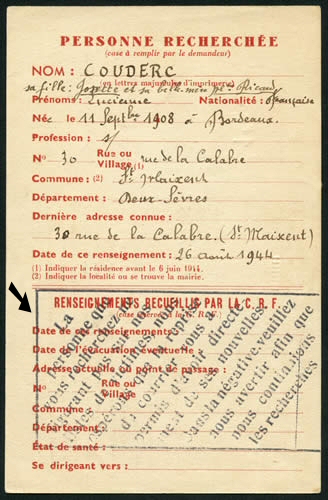 PERSONNE RECHERCHÉE
(case à remplir par le demandeur)
NOM : COUDERC
(en lettres majuscules d'imprimerie)
sa fille: Josette et sa belle-mère
Prénoms : Lucienne Nationalité : française
Née le 11 Septbre 1908 à Bordeaux
Profession : s/
No 30 Rue ou Village (1) rue de la Calabre
Commune : (2) St Maixent
Département : Deux-Sèvres
Dernière adresse connue :
30 rue de la Calabre. (St Maixent)
Date de ce renseignement : 26 août 1944
(1) Indiquer la résidence avant le 6 juin 1944.
(2) Indiquer la localité ou se trouve la mairie.
RENSEIGNEMENTS RECUEILLIS PAR LA C. R. F.
(case réservée à la C. R. F.)
Date de ces renseignements :
Date de l'évacuation éventuelle
Adresse actuelle ou point de passage :
No Rue ou Village
Commune
Département :
État de santé :
Se dirigeant vers :
La
personne que
vous recherchez
permis d'avoir directe-
ment de ses nouvelles.
Dans la négative, veuillez
nous avertir afin que
nous continuions
les recherches